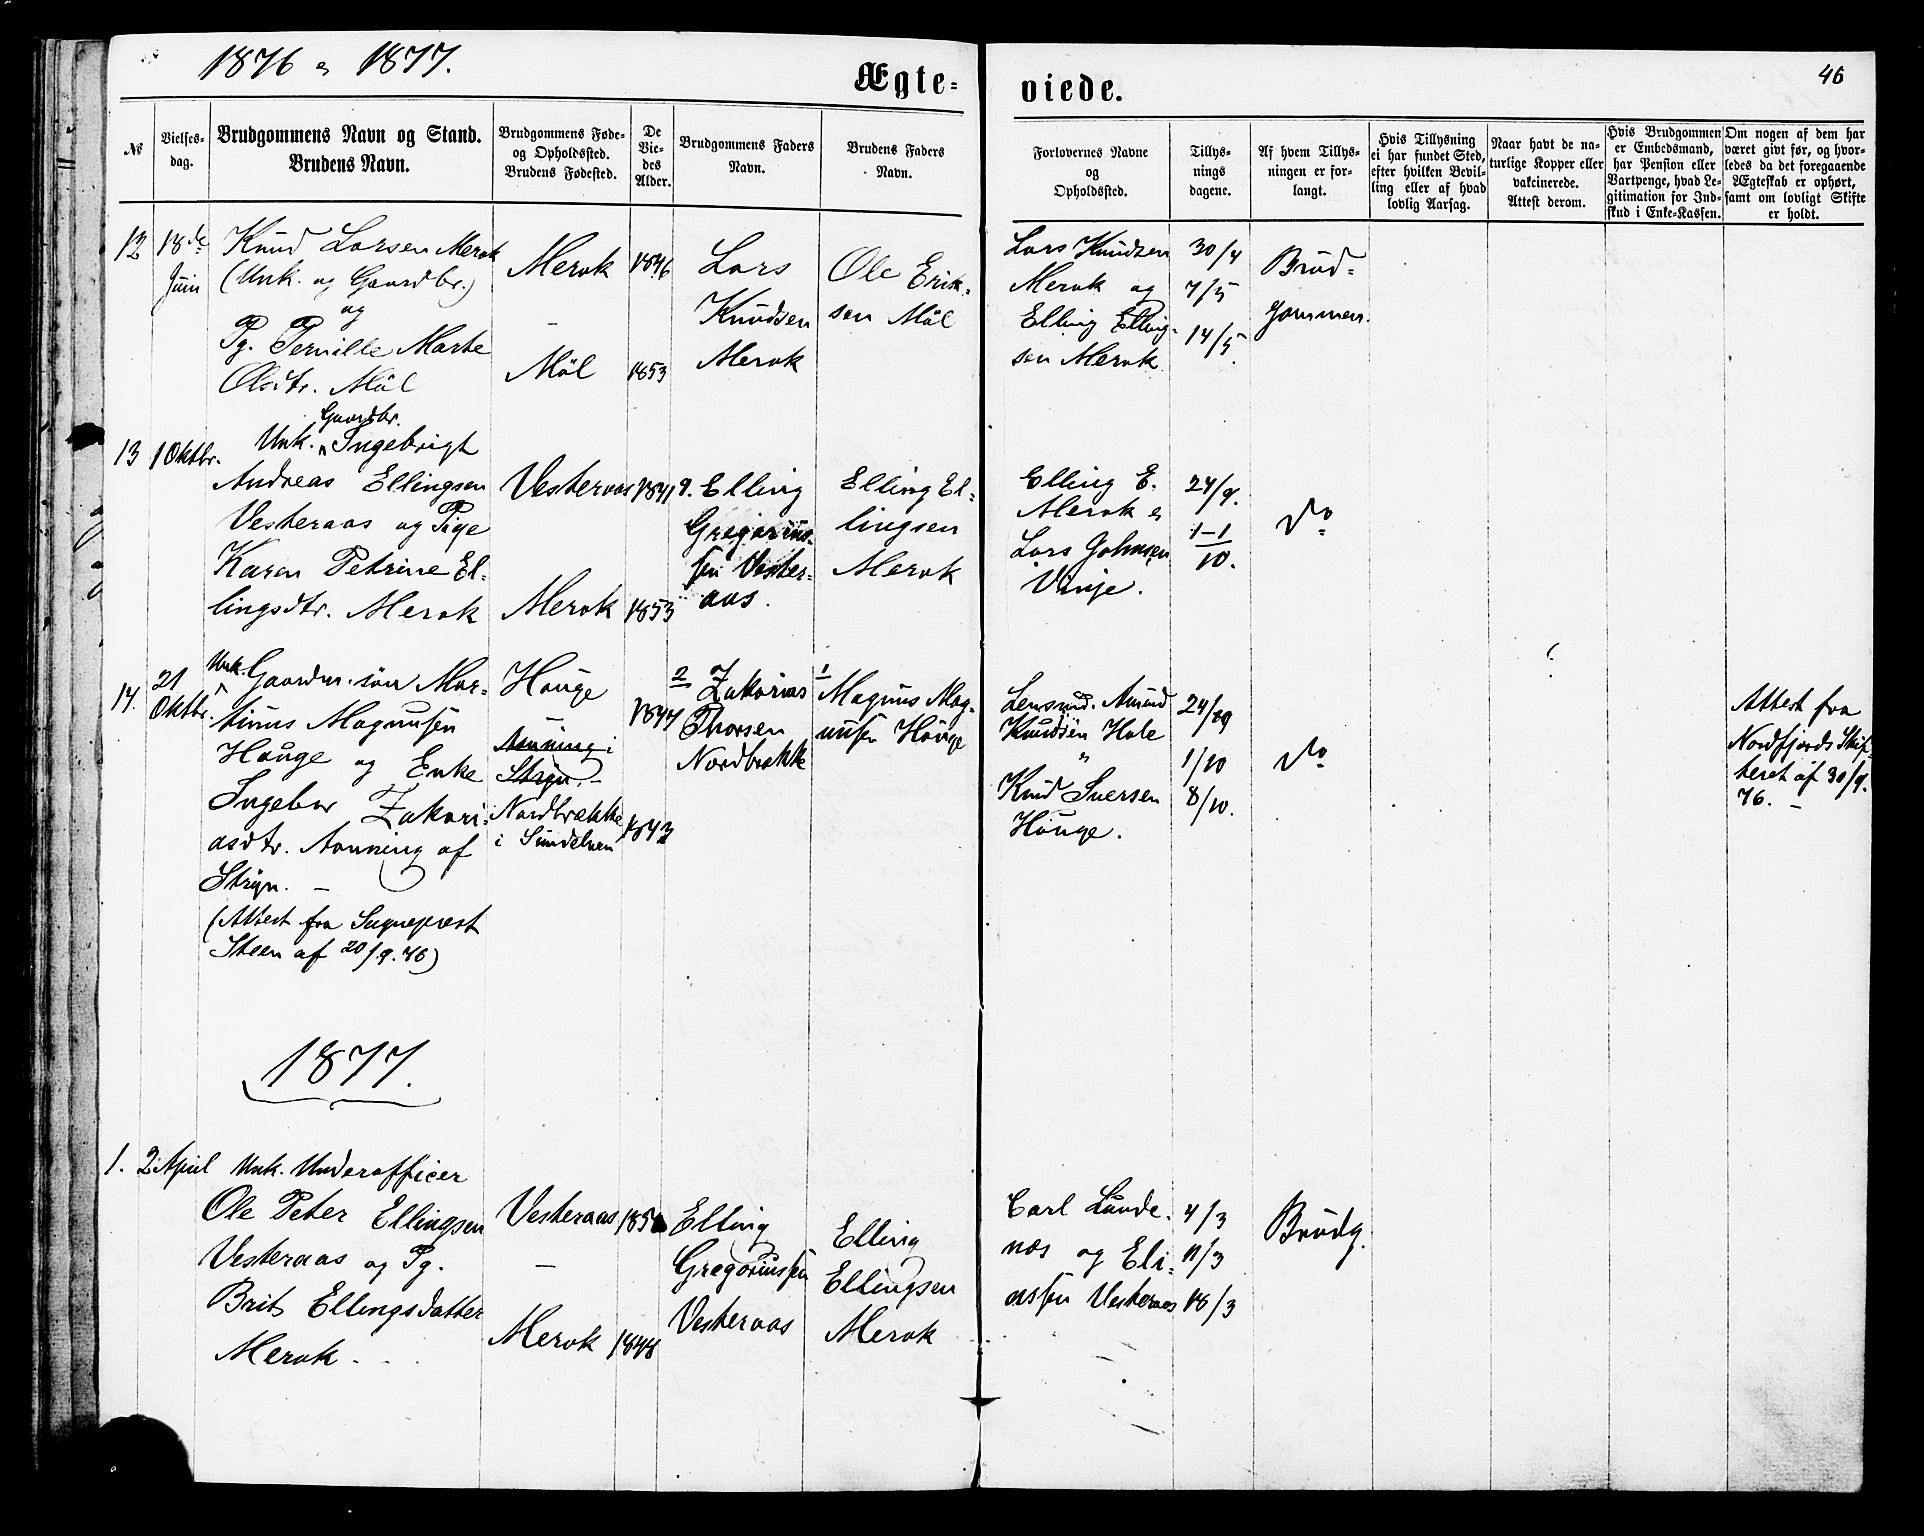 1876 & 1877.
Ægte=
viede.
46
№
Vielses-
dag.
Brudgommens Navn og Stand.
Brudens Navn.
Brudgommens Føde-
og Opholdssted.
Brudens Fødested.
De
Vie-
des
Alder.
Brudgommens Faders
Navn.
Brudens Faders
Navn.
Forlovernes Navne
og
Opholdssted.
Tillys-
nings
dagene.
Af hvem Tillys-
ningen er for-
langt.
Hvis Tillysning
ei har fundet Sted,
efter hvilken Bevil-
ling eller af hvad
lovlig Aarsag.
Naar havt de na-
turlige Kopper eller
vakcinerede.
Attest derom.
Hvis Brudgommen
er Embedsmand,
har Pension eller
Vartpenge, hvad Le-
gitimation for Ind-
skud i Enke-Kassen.
Om nogen af dem har
været givt før, og hvor-
ledes da det foregaaende
Ægteskab er ophørt,
samt om lovligt Skifte
er holdt.
12
18de
Juni
Knud Larsen Merok
(Unk. og Gaardbr.)
og
Pg. Pernille Marte
Olsdtr. Möl
Merok
–
Möl
1846
1853
Lars
Knudsen
Merok
Ole Erik-
sen Möl
Lars Knudsen
Merok og
Elling Elling-
sen Merok
30/4
7/5
14/5
Brud-
gommen.
13
1 Oktbr.
Gaardbr.
Unk. Ingebrigt
Andreas Ellingsen
Vesteraas og Pige
Karen Petrine El-
lingsdtr. Merok
Vesteraas
Merok
1841
1853
9. Elling
Gregorius-
sen Vester-
aas.
Elling El-
lingsen
Merok
Elling E.
Merok &
Lars Johnsen
Vinje.
24/9.
1-1
10.
do
14.
21
Oktbr.
Unk. Gaardm. søn Mar-
tinus Magnusen
Houge og Enke
Ingebor Zakari-
asdtr. Aonning af
Stryn. –
(Attest fra Sogneprest
Steen af 20/9. 76)
Houge
–
Aonning i
Stryn. –
Nordbrække
i Sundelven
1847
1843
2 Zakarias
Thorsen
Nordbrække
1 Magnus Mag-
nusen Houge
Lensmd. Amund
Knudsen Hole
"
Knud Iversen
Houge.
24/9
1/10
8/10.
do
Attest fra
Nordfjords Skif-
teret af 30/9.
76. –
1877.
1.
2 April
Unk. Underofficer
Ole Peter Ellingsen
Vesteraas og Pg.
Brit Ellingsdatter
Merok.
Vesteraas
–
Merok
1848
Elling
Gregoriussen
Vesteraas
Elling
Ellingsen
Merok
Carl Lunde-
næs og Eli-
assen Vesteraas
4/3
11/3
18/3
Brudg.